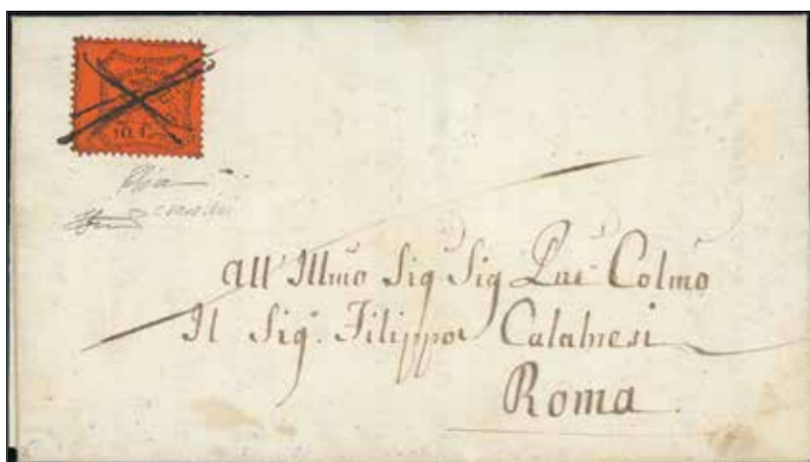 10 C
All' Illmo Sig Sig Pne Colmo
Il Sig. Filippo Calabresi
Roma